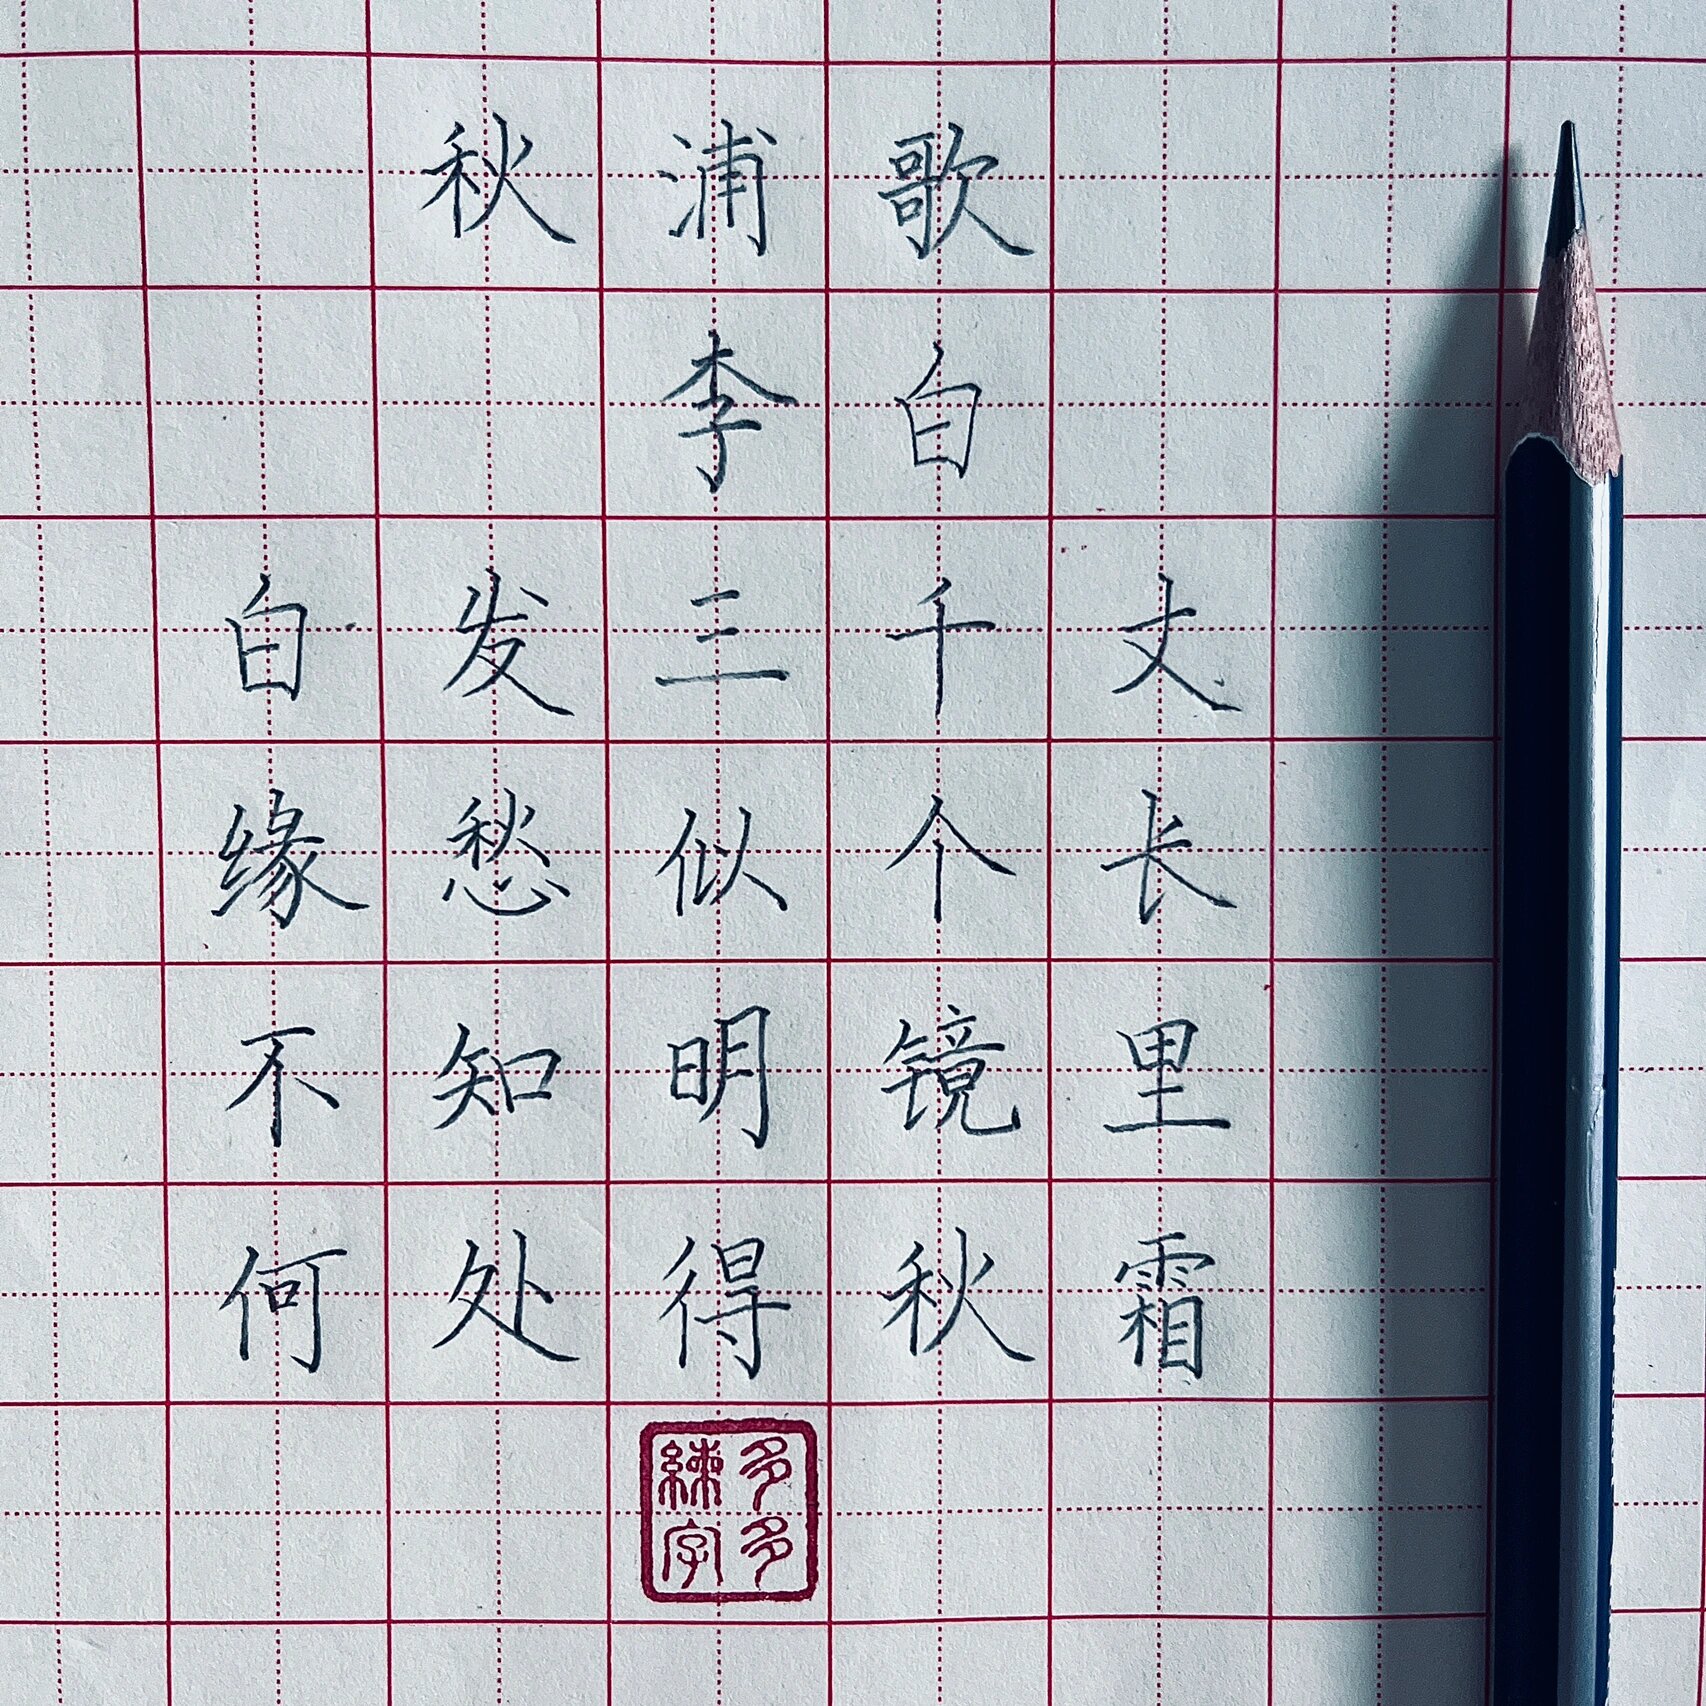 秋浦歌
李白
白发三千丈
缘愁似个长
不知明镜里
何处得秋霜
多多練字